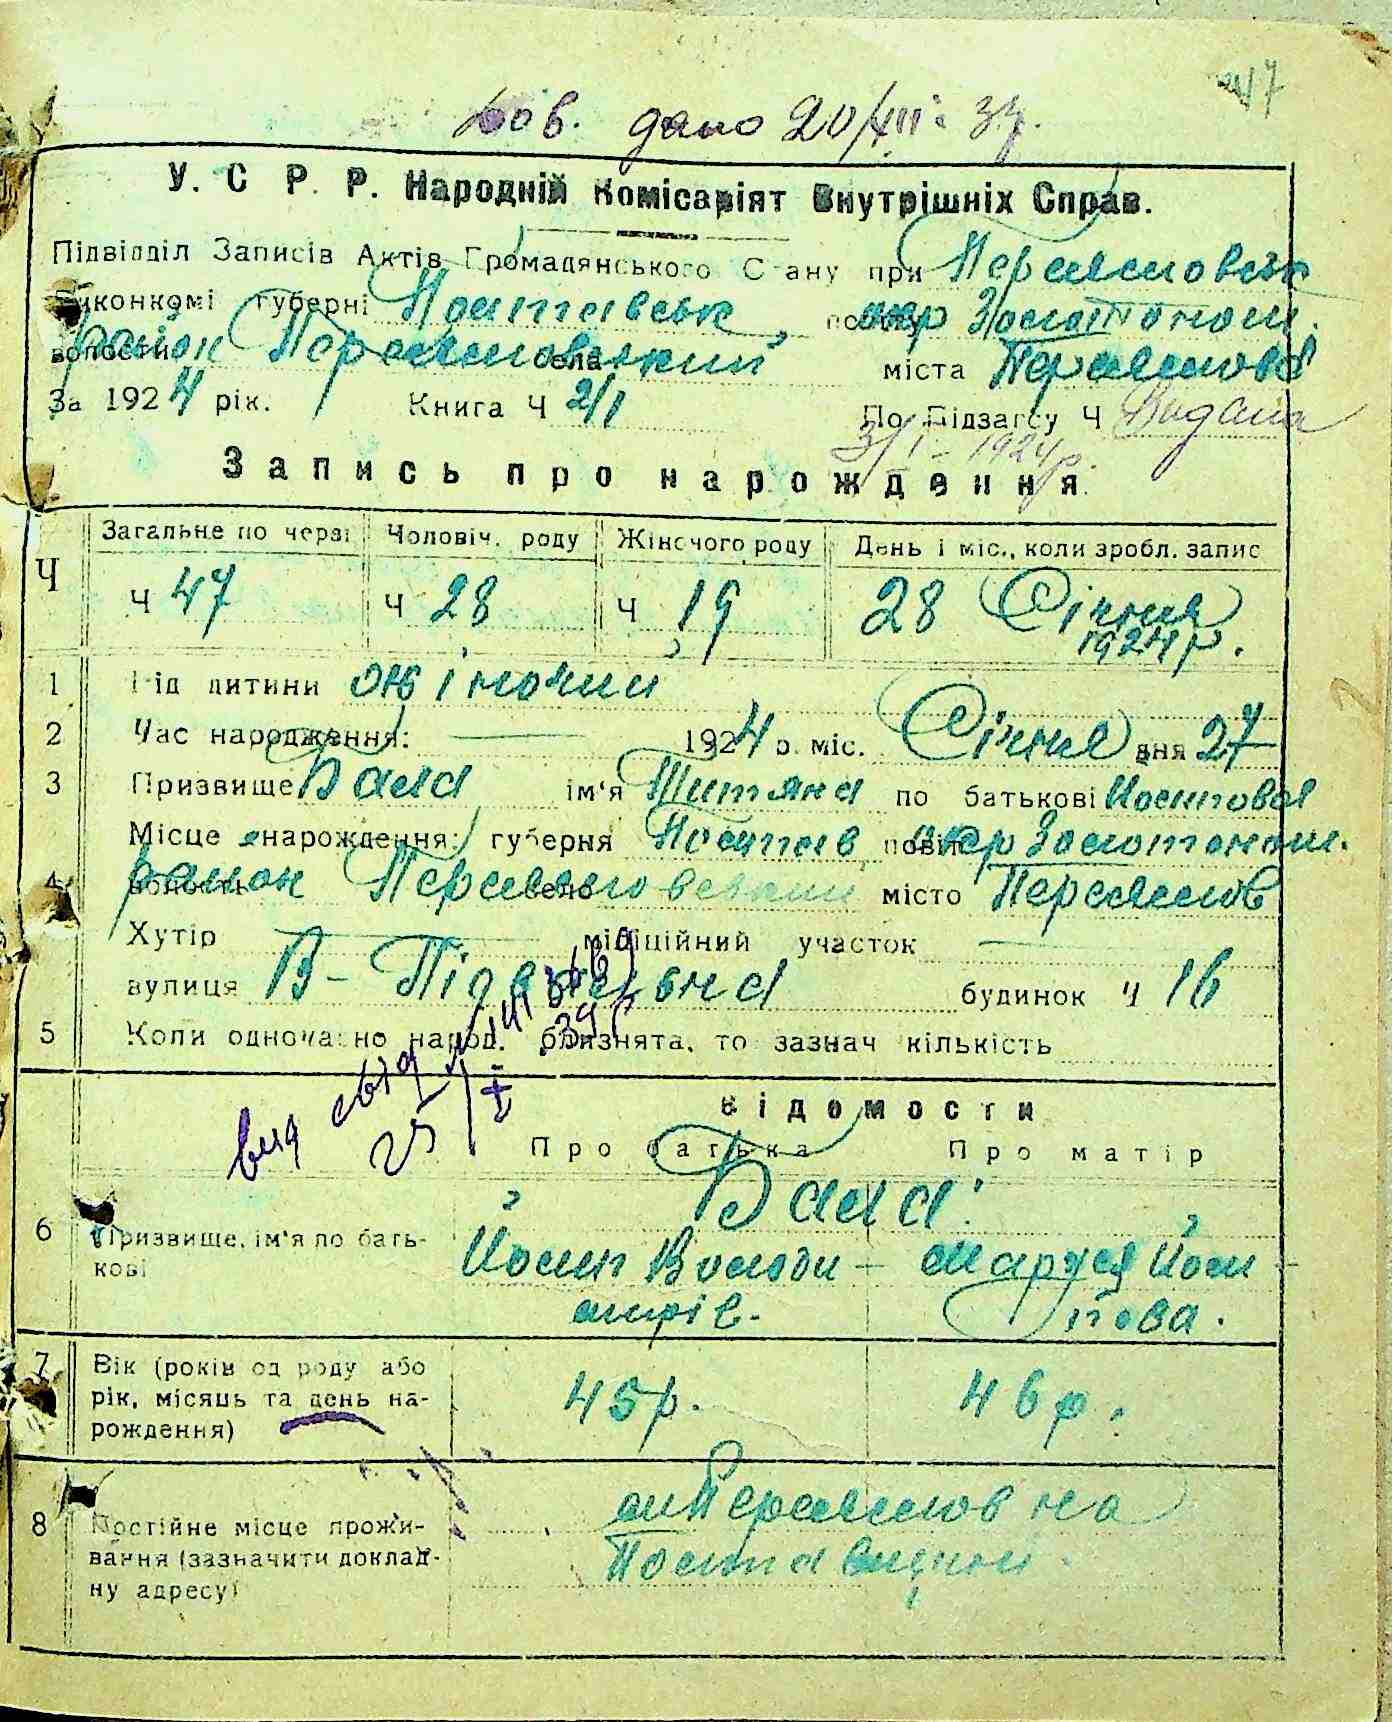 47
дано 20/VII 37.
У. С Р. Р. Народній Комісаріят Внутрішніх Справ.
Підвідділ Записів Актів Громадянського Стану при Переясловськ
Виконкомі губерні Полтавськ, окр Золотоном.
район Переясловський села міста Переяслові
За 1924 рік. Книга Ч 2/1 По Підзагсу Ч Видана
31/I - 1924р.
Запись про нарождення
Ч Загальне по черзі Чоловіч. роду Жіночого роду День і міс., коли зробл. запис
Ч 47 Ч 28 Ч 19 28 Січня
1924 р.
1 Рід дитини жіночий
2 Час народження: 1924 р. міс. Січня дня 27
3 Призвище Бала ім'я Титяна по батькові Йосипової
Місце нарождення: губерня Полтав, повіт окр Золотоном.
4 волость район Переясловський село місто Переяслов
Хутір міліційний участок
вулиця В-Підвальна будинок Ч 16
5 Коли одночасно народ. близнята, то зазнач кількість
вид 25/X 39 р
Відомости
Про батька Про матір
Бала.
6 Призвище, ім'я по бать- Йосип Володи- Маруся Йоси-
кові мирів. пова.
7 Вік (років од роду або
рік, місяць та день на- 45р. 46р.
рождення)
8 Постійне місце прожи- м Переяслов на
вання (зазначити доклад- Полтавщині.
ну адресу)